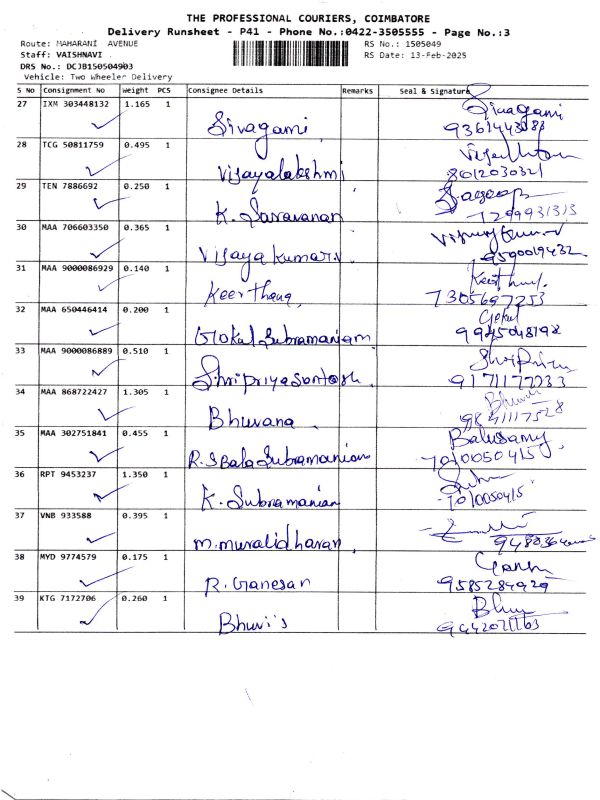 THE PROFESSIONAL COURIERS, COIMBATORE
Delivery Runsheet - P41 - Phone No.:0422-3505555 - Page No.:3
Route: MAHARANI AVENUE
RS No.: 1505049
Staff: VAISHNAVI
RS Date: 13-Feb-2025
DRS No.: DCJB150504903
Vehicle: Two Wheeler Delivery
S No Consignment No Weight PCS Consignee Details Remarks Seal & Signature
27 IXM 303448132 1.165 1 Sivagami Sivagami
28 TCG 50811759 0.495 1 Vijayalakshmi
8012030321
29 TEN 7886692 0.250 1 K. Saravanan
7299931313
30 MAA 706603350 0.365 1 Vijayakumar
9590019432
31 MAA 9000086929 0.140 1 Keerthana
7305697253
32 MAA 650446414 0.200 1 Gokul Subramaniam Gokul
9945048198
33 MAA 9000086889 0.510 1 Shripriya Santosh
9171177233
34 MAA 868722427 1.305 1 Bhuvana
9841117528
35 MAA 302751841 0.455 1 R.S Bala Subramanian Balusamy
7010050415
36 RPT 9453237 1.350 1 K. Subramanian
7010050415
37 VNB 933588 0.395 1 M. Muralidharan
38 MYD 9774579 0.175 1 R. Ganesan
9585284929
39 KTG 7172706 0.260 1 Bhuvi's